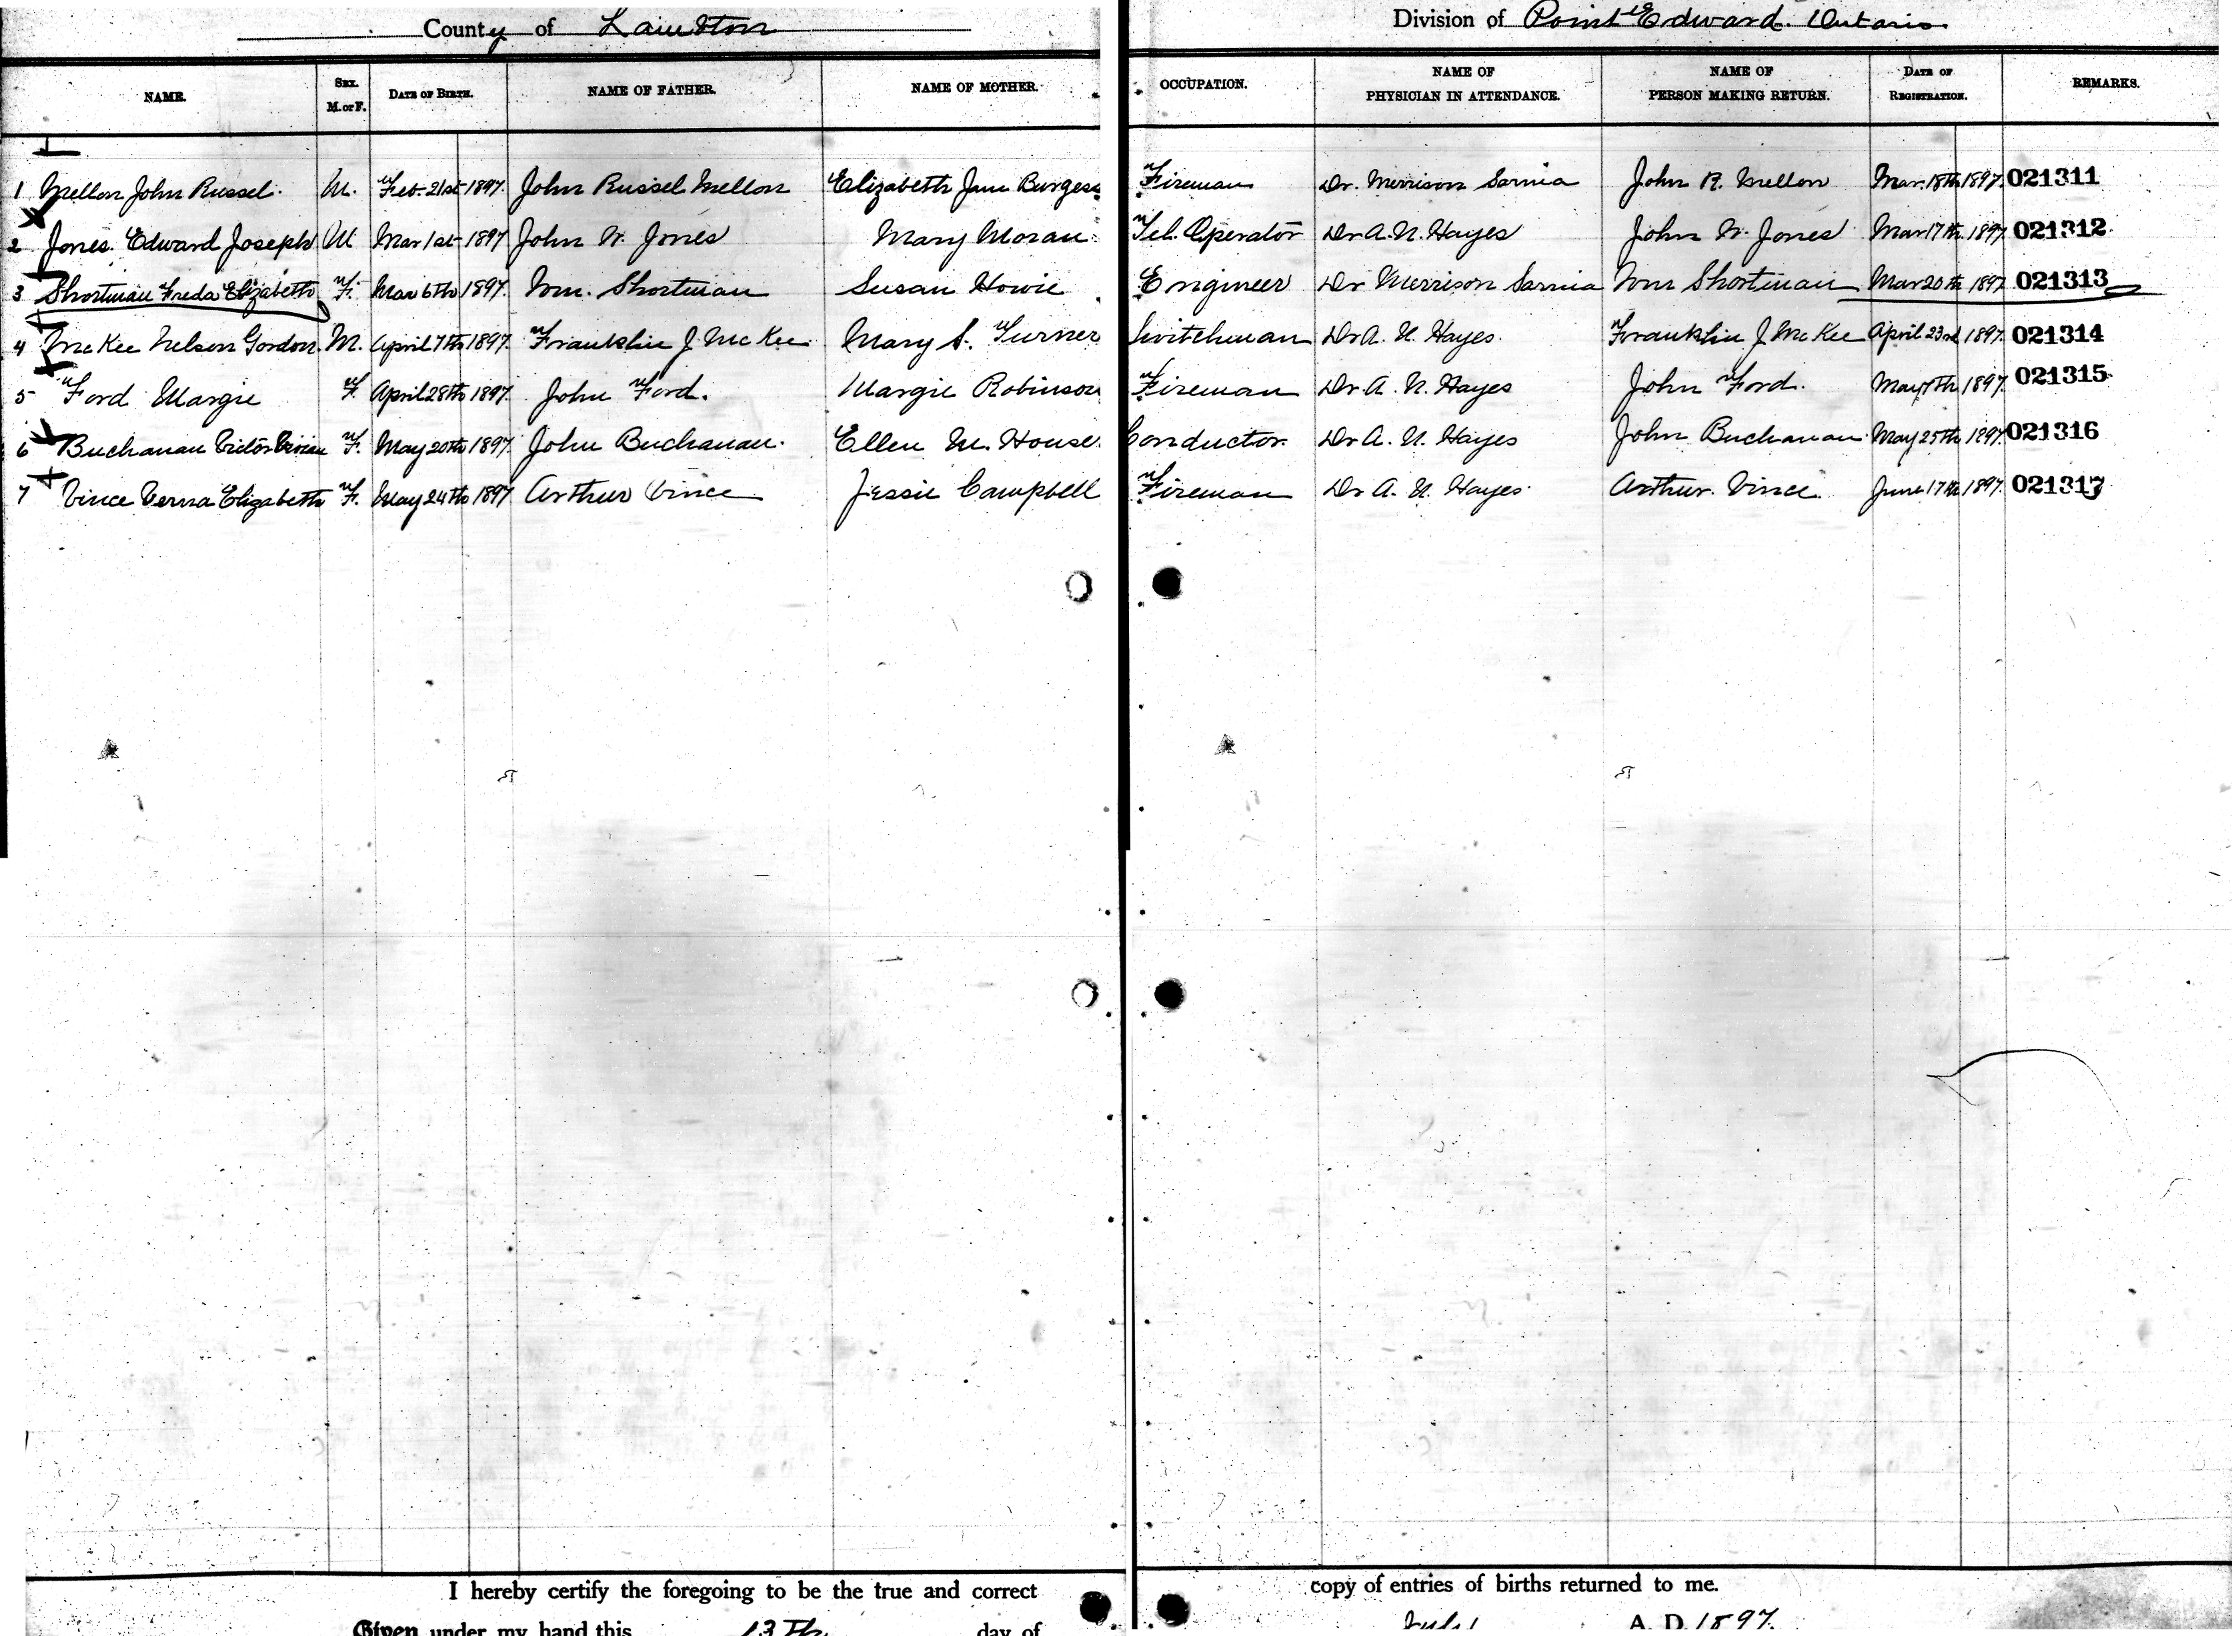 County of Lambton Division of Point Edward Ontario
NAME. SEX. M. or F. DATE OF BIRTH. NAME OF FATHER. NAME OF MOTHER. OCCUPATION. NAME OF PHYSICIAN IN ATTENDANCE. NAME OF PERSON MAKING RETURN. DATE OF REGISTRATION. REMARKS.
1 Mellon John Russel. M. Feb. 21st 1897. John Russel Mellon Elizabeth Jane Burgess Fireman Dr. Merrison Sarnia John R. Mellon Mar. 18th 1897. 021311
2 Jones. Edward Joseph M Mar 1st 1897 John W. Jones Mary Moran Tel. Operator Dr A. N. Hayes John W. Jones Mar 17th 1897 021312
3 Shortman Freda Elizabeth F. Mar 6th 1897. Wm. Shortman Susan Howie Engineer Dr Merrison Sarnia Wm Shortman Mar 20th 1897 021313
4 McKee Nelson Gordon. M. April 7th 1897. Franklin J. McKee Mary S. Turner Switchman Dr A. N. Hayes. Franklin J McKee April 23rd 1897. 021314
5 Ford Margie F. April 28th 1897. John Ford. Margie Robinson Fireman Dr A. N. Hayes John Ford. May 7th 1897. 021315
6 Buchanan Victor Vivian F. May 20th 1897. John Buchanan. Ellen M. House. Conductor. Dr A. N. Hayes John Buchanan May 25th 1897. 021316
7 Vince Verna Elizabeth F. May 24th 1897 Arthur Vince Jessie Campbell Fireman Dr A. N. Hayes. Arthur. Vince. June 17th 1897. 021317
I hereby certify the foregoing to be the true and correct copy of entries of births returned to me.
Given under my hand this 13th day of July A. D. 1897.